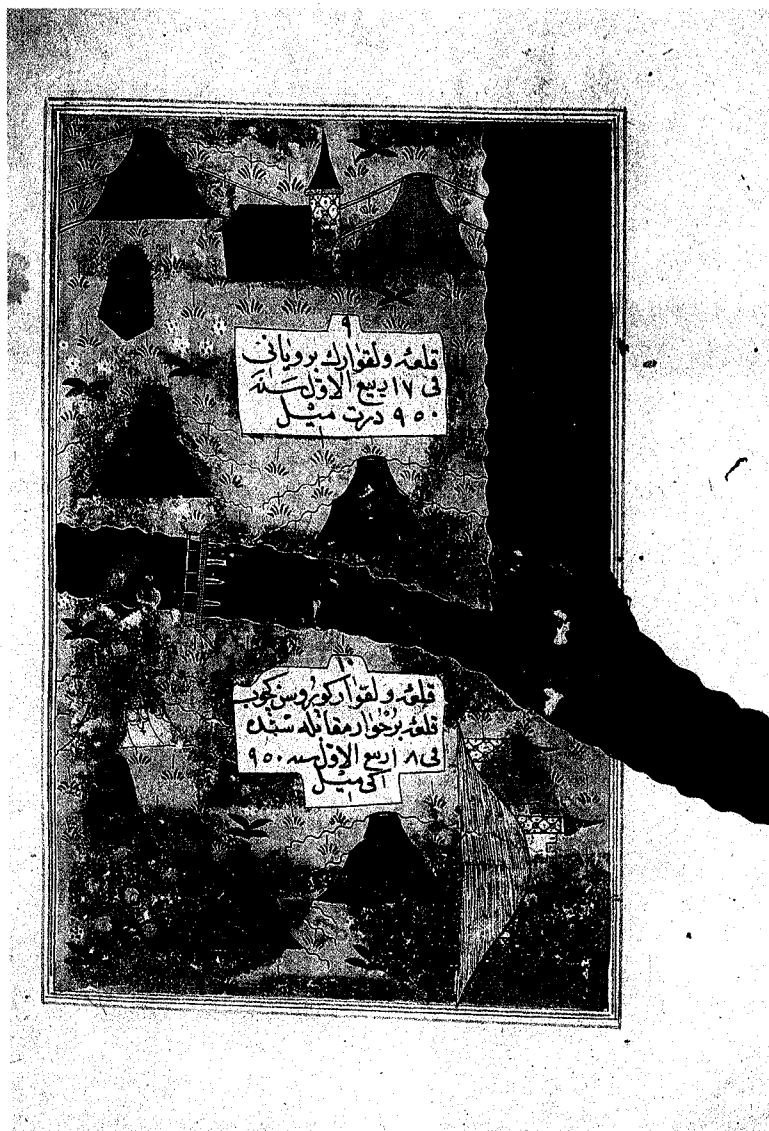 ٩
قلعهٔ ولقوارك برویانی
فی ١٧ ربیع الاول سنه
٩٥٠ درت میل
١٠
قلعهٔ ولقوار كوروسن كچوب
قلعهٔ برخوار مقابله سنده
فی ١٨ ربیع الاول سنه ٩٥٠
اكی میل